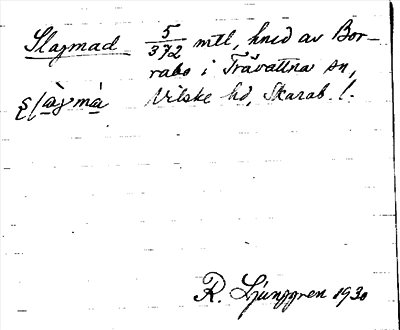 Slagmad 5/372 mtl, hned av Bor-
rabo i Trävattna sn,
Vilske hd, Skarab. l.
R. Ljunggren 1930